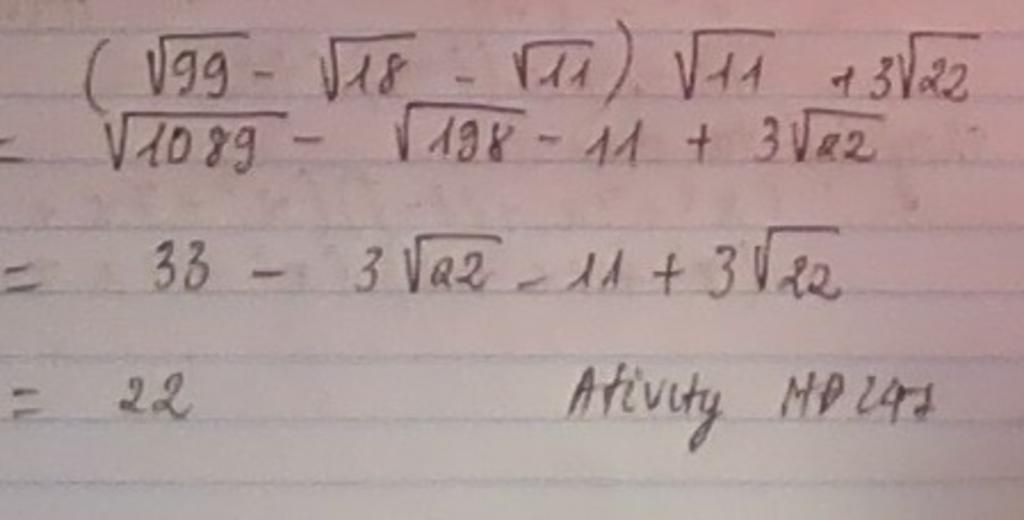 (√99 - √18 - √11). √11 + 3√22
= √1089 - √198 - 11 + 3√22
= 33 - 3√22 - 11 + 3√22
= 22 Ativity